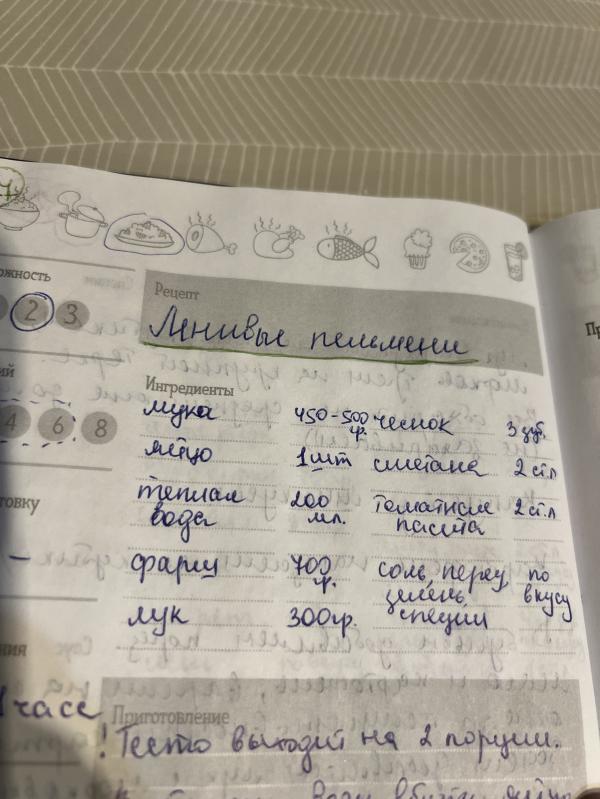 Рецепт
Ленивые пельмени
2 3
Ингредиенты
мука 450-500 гр. чеснок 3 зуб.
яйцо 1 шт сметана 2 ст.л
4 6 8
теплая вода 200 мл. томатная паста 2 ст.л
фарш 700 гр. соль, перец, зелень, специи по вкусу
лук 300гр.
часе
Приготовление
! Тесто выходит на 2 порции.